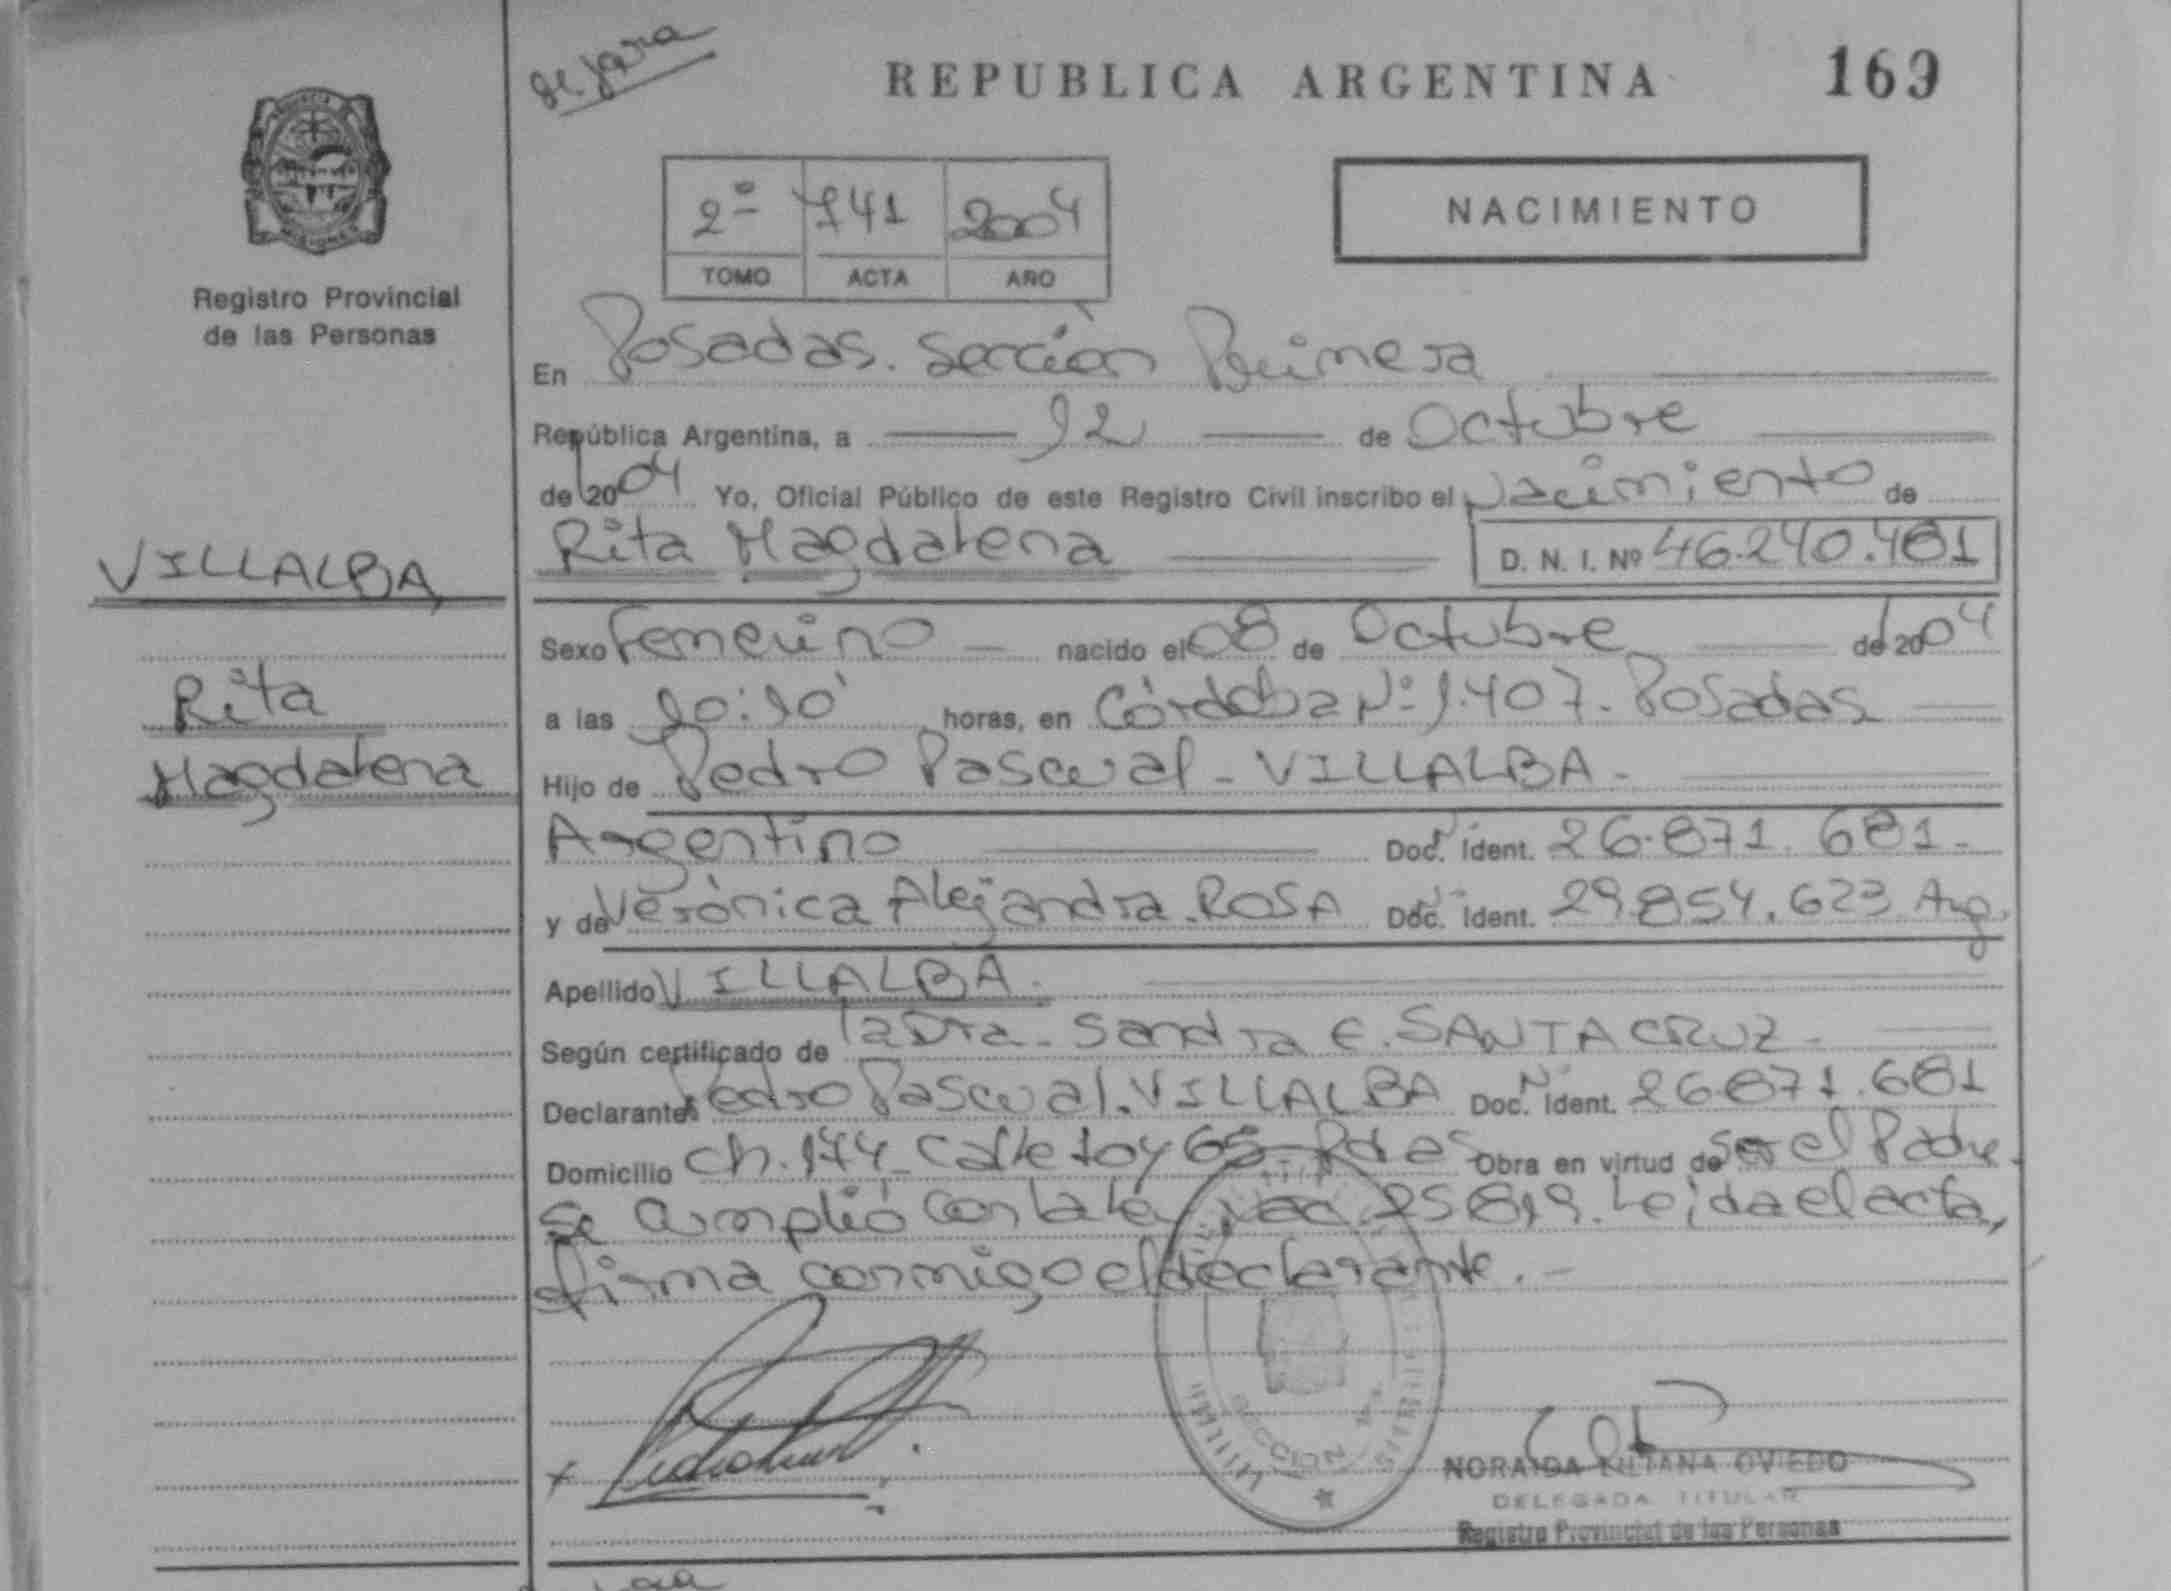 REPUBLICA ARGENTINA
169
Registro Provincial
de las Personas
2º 741 2004
TOMO ACTA AÑO
NACIMIENTO
En Posadas. Sección Primera
República Argentina, a 12 de Octubre
de 2004 Yo, Oficial Público de este Registro Civil inscribo el Nacimiento de
Rita Magdalena D. N. I. Nº 46.240.481
VILLALBA
Rita
Magdalena
Sexo Femenino nacido el 08 de Octubre de 2004
a las 10:10' horas, en Córdoba Nº 1.407. Posadas
Hijo de Pedro Pascual - VILLALBA -
Argentino Doc. Ident. 26.871.681.-
y de Verónica Alejandra. ROSA Doc. Ident. 29.854.623 Arg.
Apellido VILLALBA.
Según certificado de la Dra. Sandra E. SANTA CRUZ -
Declarantes Pedro Pascual. VILLALBA Doc. Ident. 26.871.681
Domicilio Ch. 174 - Calle 107 65 - Pdas Obra en virtud de ser el Padre.
Se Cumplió con la Ley Nac. 25819. Leída el acta,
firma conmigo el declarante. -
NORAIDA LILIANA OVIEDO
DELEGADA TITULAR
Registro Provincial de las Personas